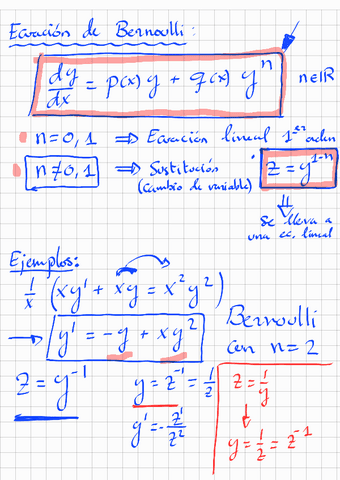 Ecuación de Bernoulli:
dy/dx = p(x) y + q(x) yⁿ n∈ℝ
n=0,1 ⟹ Ecuación lineal 1er orden
n≠0,1 ⟹ Sustitución z = y¹⁻ⁿ
(cambio de variable)
⇓
se lleva a
una ec. lineal
Ejemplos:
1/x (xy' + xy = x²y²)
→ y' = -y + xy² Bernoulli
con n=2
z = y⁻¹ y = z⁻¹ = 1/z z = 1/y
y' = -z'/z² ↓
y = 1/z = z⁻¹